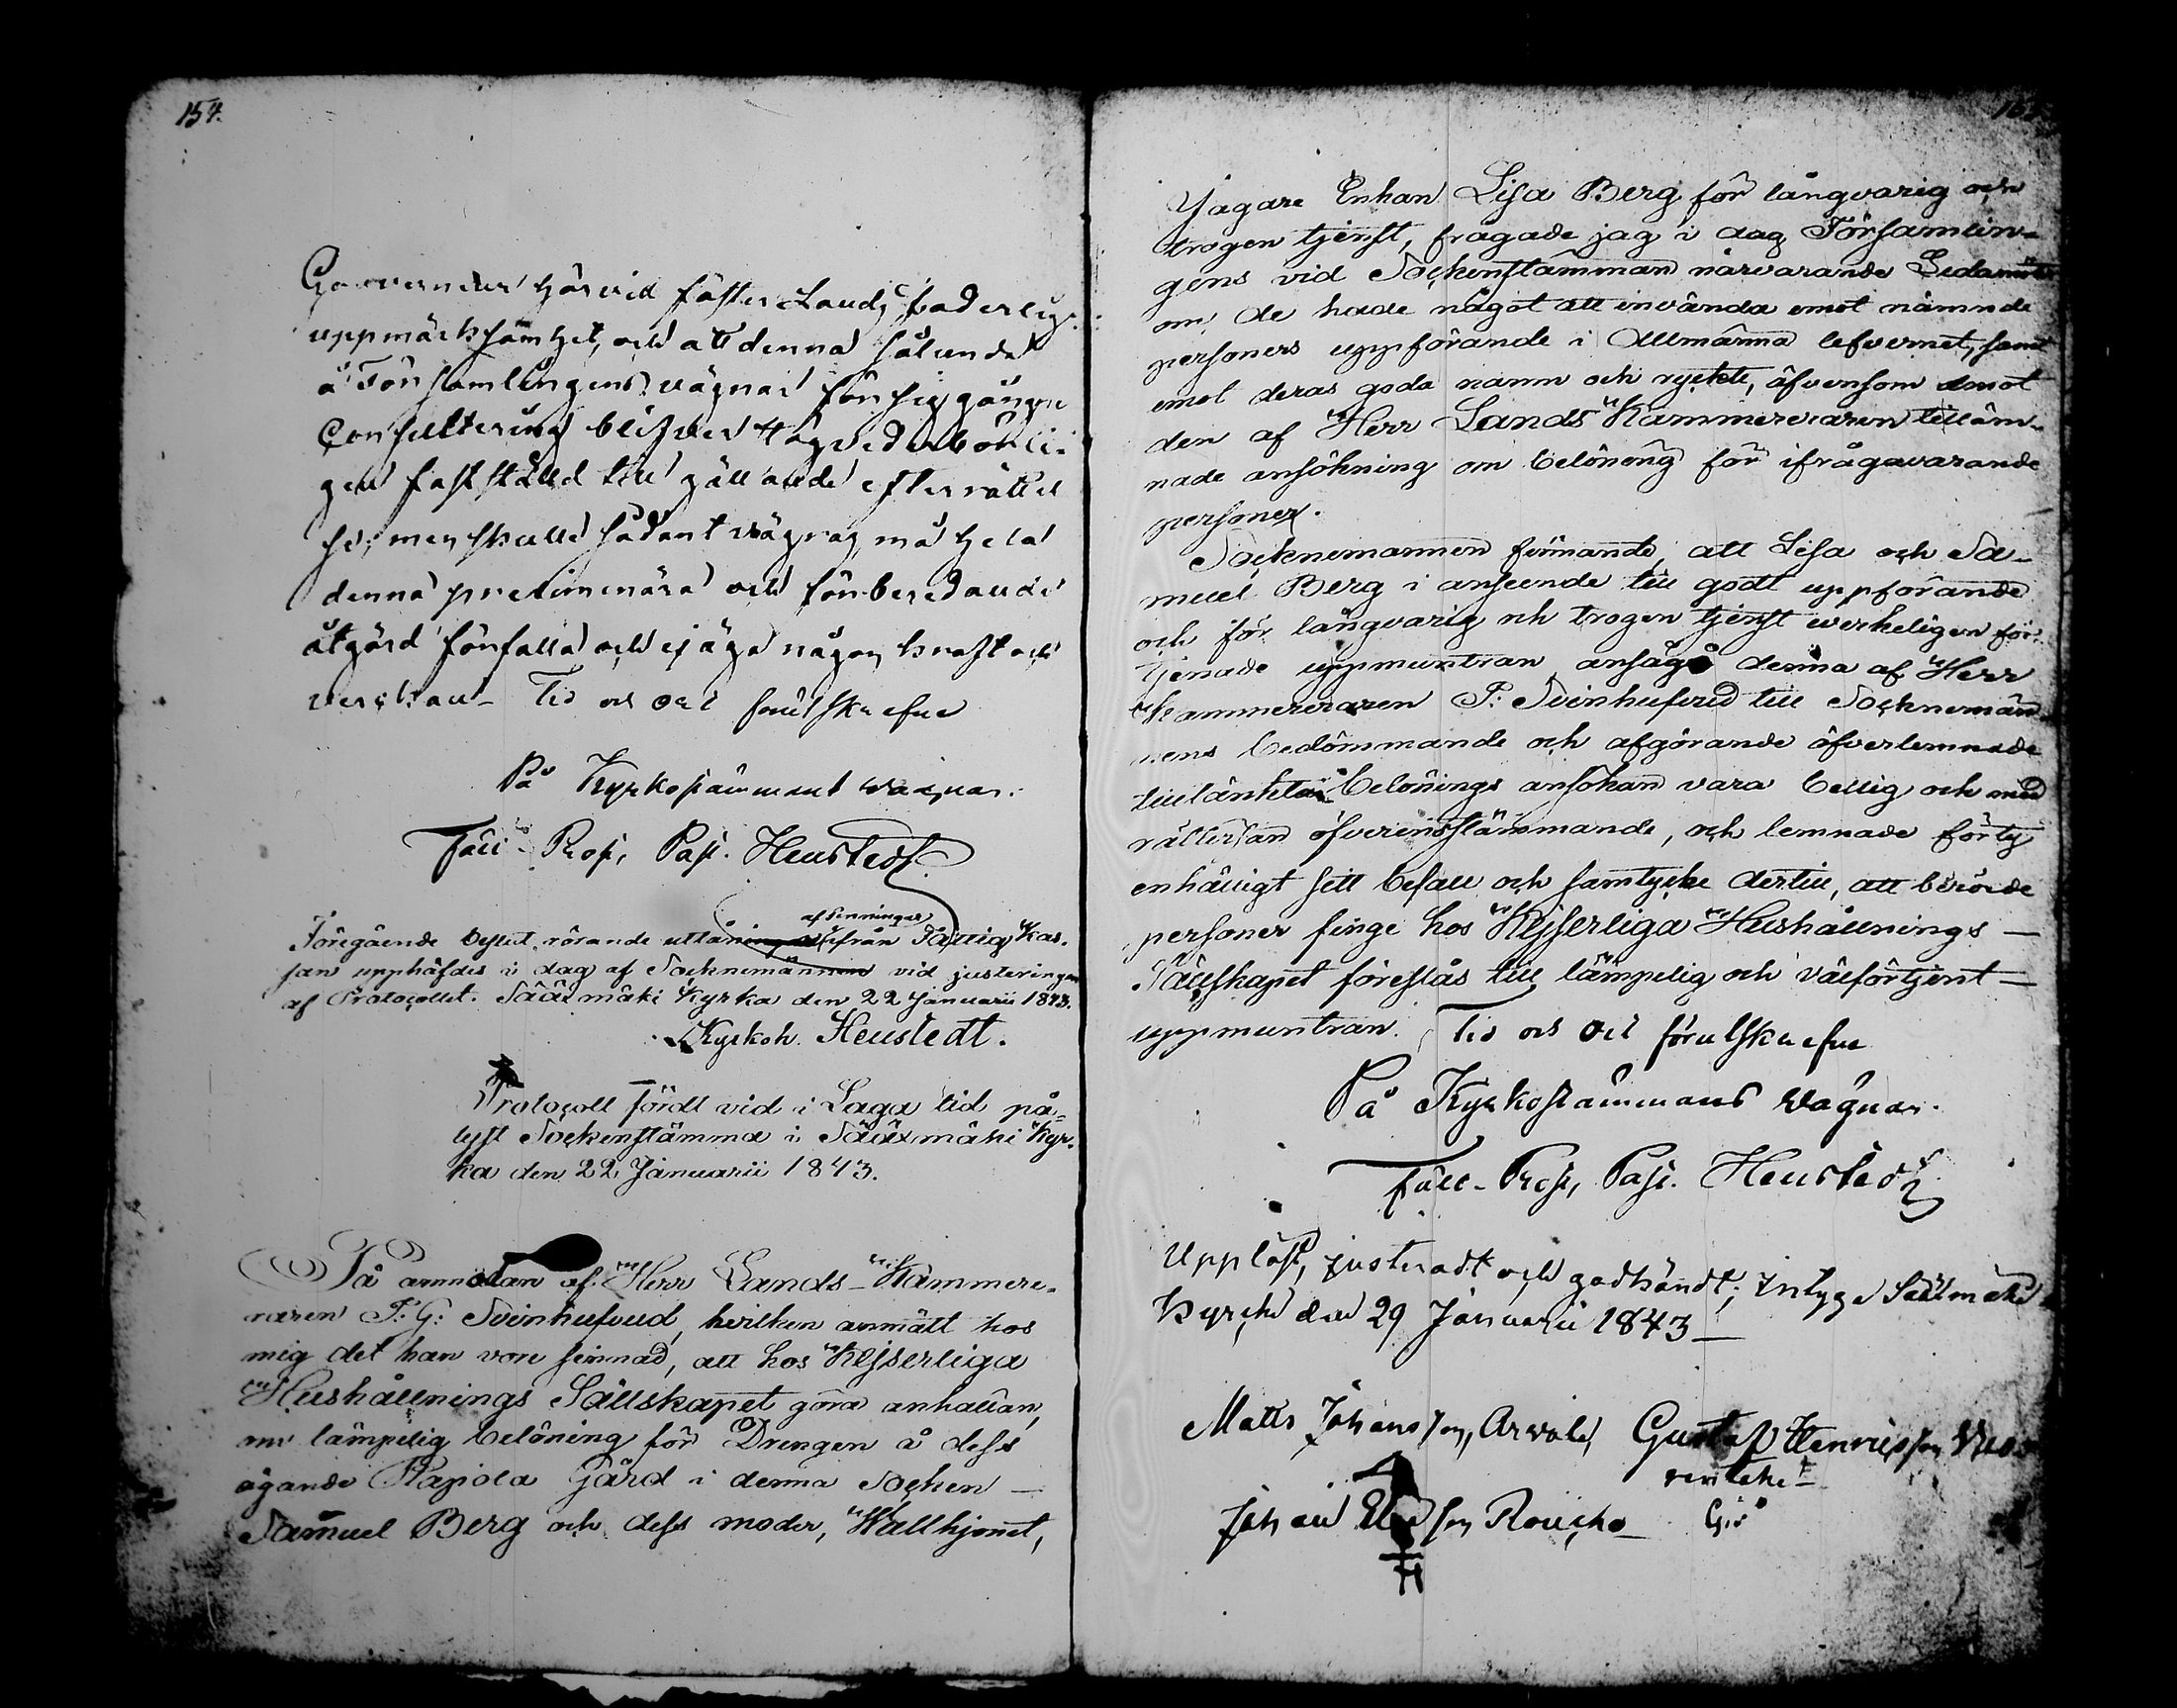 154.
Gouverneuren härvid fäster Landsfaderlig
uppmärksamhet, och att denna sålunda
å Församlingens vägnar försiggångne
Consultering blifver Högvederbörli-
gen fastställd till gällande efterrättel
se; men skulle sådant vägras, må hela
denna preliminära och förberedande
åtgärd förfalla och ej äga någon kraft och
verkan. Tid och ort förutskrefne
På Kyrkostämmans vägnar.
Past. Heustedt
af Penningar
Föregående beslut rörande utlåning ifrån Fattig Kas-
san upphäfdes i dag af Socknemännen vid justeringen
af Protocollet. Sääxmäki Kyrka den 22 Januarii 1843.
Kyrkoh. Heustedt.
Protocoll fördt vid i Laga tid på-
lyst Sockenstämma i Sääxmäki Kyr-
ka den 22 Januarii 1843.
På anmodan af Herr Lands-Kammere-
raren P: G: Svinhufvud, hvilken anmält hos
mig det han vore sinnad, att hos Kejserliga
Hushållnings Sällskapet göra anhållan,
om lämpelig belöning för Drengen å dess
ägande Rapola Gård i denna Socken —
Samuel Berg och dess moder, Wallhjonet,
Jägare Enkan Lisa Berg för långvarig och
trogen tjenst, frågade jag i dag Församlin-
gens vid Sockenstämman närvarande Ledamöter
om de hade något att invända emot nämnde
personers uppförande i Allmänna lefvernet, samt
emot deras goda namn och rykte, äfvensom emot
den af Herr Lands Kammereraren tilläm-
nade ansökning om belöning för ifrågavarande
personer.
Socknemännen finnande, att Lisa och Sa-
muel Berg i anseende till godt uppförande
och för långvarig och trogen tjenst werkeligen för-
tjenade uppmuntran ansågo denna af Herr
Kammereraren P: Svinhufvud till Socknemän-
nens bedömmande och afgörande öfverlemnade
tilltänkta belönings ansökan vara billig och med
rättvisan öfverensstämmande, och lemnade förty
enhälligt sitt bifall och samtycke dertill, att berörde
personer finge hos Kejserliga Hushållnings —
Sällskapet föreslås till lämpelig och välförtjent —
uppmuntran. Tid och Ort förutskrefne
På Kyrkostämmans vägnar.
Past. Heustedt
Uppläst, justeradt och godkändt; intyga Sääxmäki
Kyrcka den 29 Januarii 1843 —
Matts Johansson, Arvola, Gustaf Henricsson
Johan son